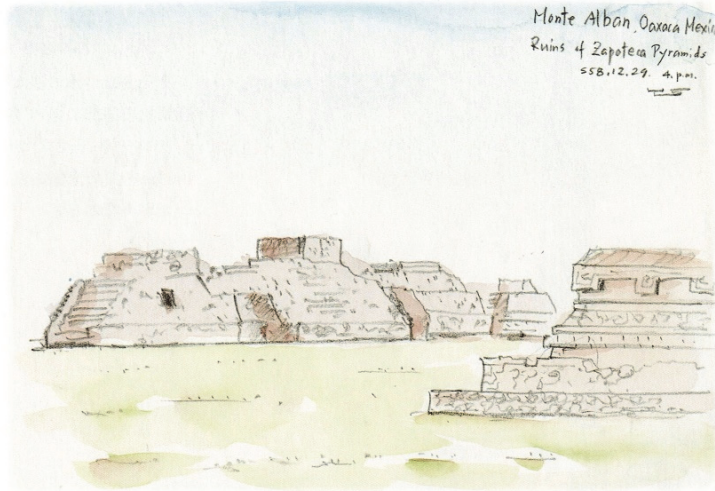 Monte Alban, Oaxaca Mexic
Ruins of Zapoteca Pyramids
S58.12.29. 4.p.m.